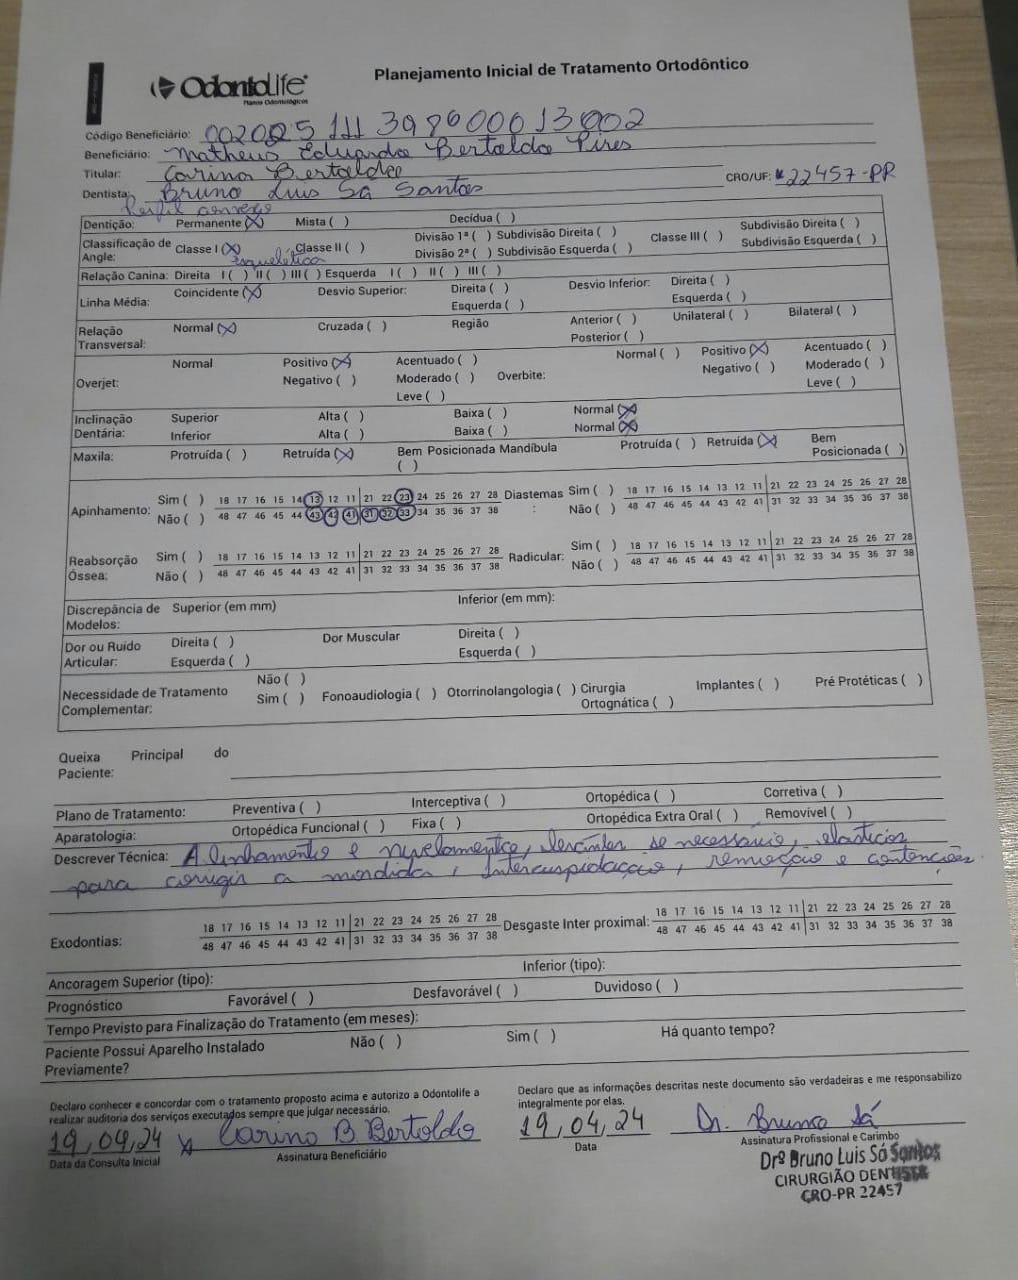 OdontoLife
Planos Odontológicos
Planejamento Inicial de Tratamento Ortodôntico
Código Beneficiário: 002025 111 398600013002
Beneficiário: Matheus Eduardo Bertoldo Pires
Titular: Carina Bertoldo
Dentista: Bruno Luis Sá Santos CRO/UF: 22457-PR
Perfil convexo
Dentição: Permanente (X) Mista ( ) Decídua ( )
Classificação de Angle: Classe I (X) esquelética Classe II ( ) Divisão 1ª ( ) Subdivisão Direita ( ) Classe III ( ) Subdivisão Direita ( )
Divisão 2ª ( ) Subdivisão Esquerda ( ) Subdivisão Esquerda ( )
Relação Canina: Direita I ( ) II ( ) III ( ) Esquerda I ( ) II ( ) III ( )
Linha Média: Coincidente (X) Desvio Superior: Direita ( ) Desvio Inferior: Direita ( )
Esquerda ( ) Esquerda ( )
Relação Transversal: Normal (X) Cruzada ( ) Região Anterior ( ) Unilateral ( ) Bilateral ( )
Posterior ( )
Overjet: Normal Positivo (X) Acentuado ( ) Overbite: Normal ( ) Positivo (X) Acentuado ( )
Negativo ( ) Moderado ( ) Negativo ( ) Moderado ( )
Leve ( ) Leve ( )
Inclinação Dentária: Superior Alta ( ) Baixa ( ) Normal (X)
Inferior Alta ( ) Baixa ( ) Normal (X)
Maxila: Protruída ( ) Retruída (X) Bem Posicionada ( ) Mandíbula Protruída ( ) Retruída (X) Bem Posicionada ( )
Apinhamento: Sim ( ) 18 17 16 15 14 13 12 11 21 22 23 24 25 26 27 28 Diastemas : Sim ( ) 18 17 16 15 14 13 12 11 21 22 23 24 25 26 27 28
Não ( ) 48 47 46 45 44 43 42 41 31 32 33 34 35 36 37 38 Não ( ) 48 47 46 45 44 43 42 41 31 32 33 34 35 36 37 38
Reabsorção Óssea: Sim ( ) 18 17 16 15 14 13 12 11 21 22 23 24 25 26 27 28 Radicular: Sim ( ) 18 17 16 15 14 13 12 11 21 22 23 24 25 26 27 28
Não ( ) 48 47 46 45 44 43 42 41 31 32 33 34 35 36 37 38 Não ( ) 48 47 46 45 44 43 42 41 31 32 33 34 35 36 37 38
Discrepância de Modelos: Superior (em mm) Inferior (em mm):
Dor ou Ruído Articular: Direita ( ) Dor Muscular Direita ( )
Esquerda ( ) Esquerda ( )
Necessidade de Tratamento Complementar: Não ( )
Sim ( ) Fonoaudiologia ( ) Otorrinolangologia ( ) Cirurgia Ortognática ( ) Implantes ( ) Pré Protéticas ( )
Queixa Principal do Paciente:
Plano de Tratamento: Preventiva ( ) Interceptiva ( ) Ortopédica ( ) Corretiva ( )
Aparatologia: Ortopédica Funcional ( ) Fixa ( ) Ortopédica Extra Oral ( ) Removível ( )
Descrever Técnica: Alinhamento e nivelamento, levantes se necessário, elásticos
para corrigir a mordida, Intercuspidação, remoção e contenções.
Exodontias: 18 17 16 15 14 13 12 11 21 22 23 24 25 26 27 28 Desgaste Inter proximal: 18 17 16 15 14 13 12 11 21 22 23 24 25 26 27 28
48 47 46 45 44 43 42 41 31 32 33 34 35 36 37 38 48 47 46 45 44 43 42 41 31 32 33 34 35 36 37 38
Ancoragem Superior (tipo): Inferior (tipo):
Prognóstico Favorável ( ) Desfavorável ( ) Duvidoso ( )
Tempo Previsto para Finalização do Tratamento (em meses):
Paciente Possui Aparelho Instalado Previamente? Não ( ) Sim ( ) Há quanto tempo?
Declaro conhecer e concordar com o tratamento proposto acima e autorizo a Odontolife a
realizar auditoria dos serviços executados sempre que julgar necessário.
Declaro que as informações descritas neste documento são verdadeiras e me responsabilizo
integralmente por elas.
19,04,24 x Carina B Bertoldo 19,04,24 Dr. Bruno Sá
Data da Consulta Inicial Assinatura Beneficiário Data Assinatura Profissional e Carimbo
Drº Bruno Luis Sá Santos
CIRURGIÃO DENTISTA
CRO-PR 22457